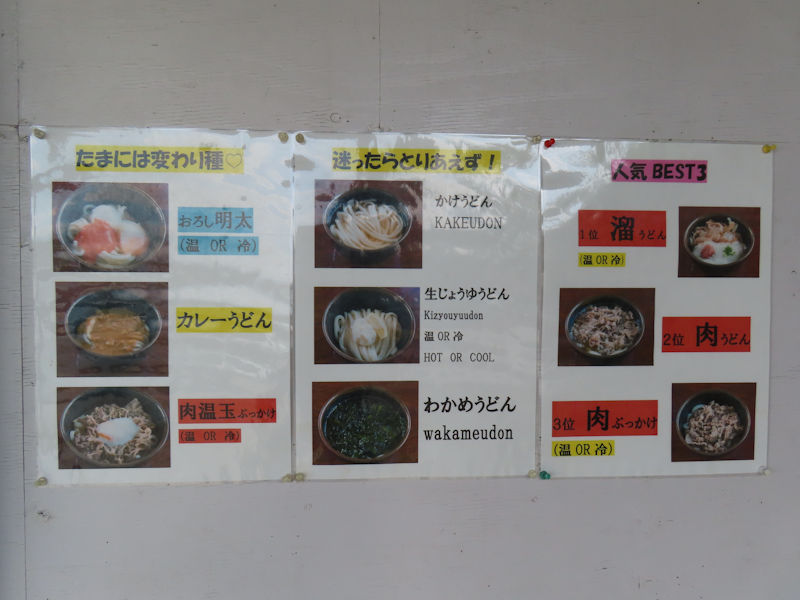 たまには変わり種♡
おろし明太
(温 OR 冷)
カレーうどん
肉温玉ぶっかけ
(温 OR 冷)
迷ったらとりあえず！
かけうどん
KAKEUDON
生じょうゆうどん
Kizyouyuudon
温 OR 冷
HOT OR COOL
わかめうどん
wakameudon
人気 BEST3
1位 溜うどん
(温 OR 冷)
2位 肉うどん
3位 肉ぶっかけ
(温 OR 冷)